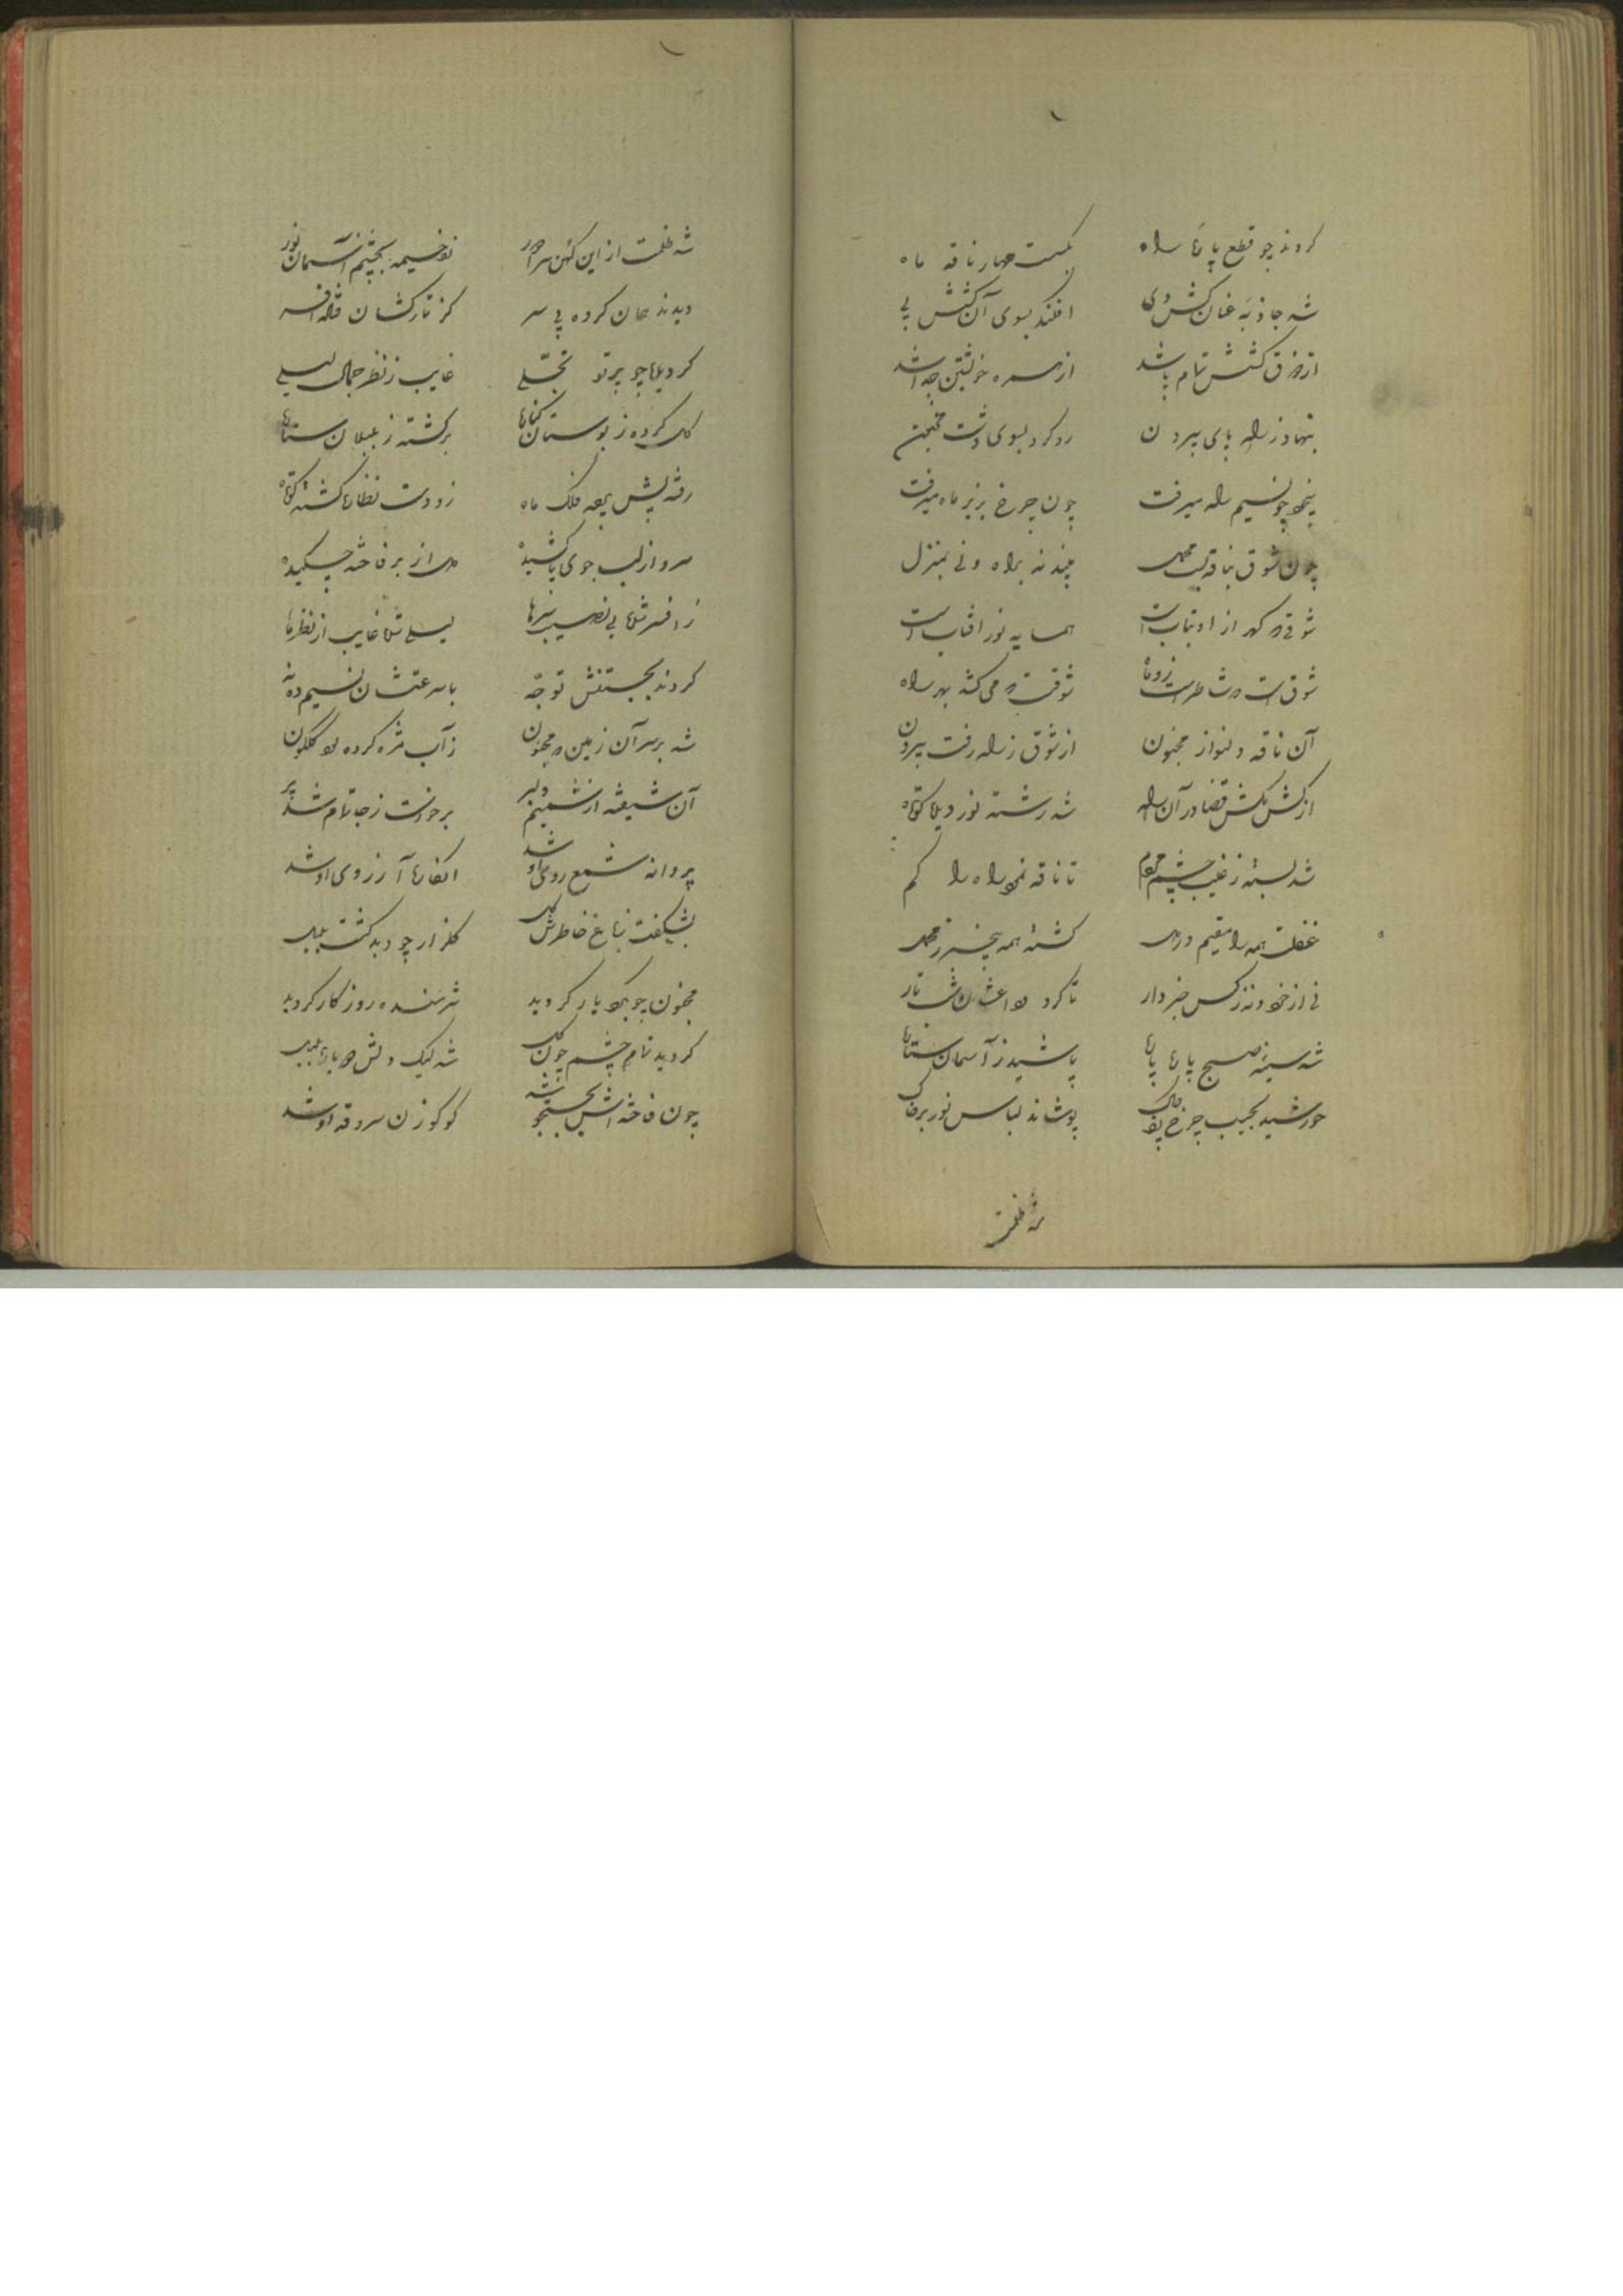 کردند چو قطع پارهٔ راه بگسست مهار ناقه ماه
شد جاذبه عنان کش وی افکند بسوی آن کشش پی
از فرق کشش تمام پا شد از همره خویشتن جدا شد
بنهاد ز راه پای بیرون رو کرد بسوی دشت مجنون
بیخود چو نسیم راه میرفت چون چرخ بزیر ماه میرفت
چون شوق بناقه بست محمل نه براه و نی بمنزل
شوقی که از او بتاب است همسایه نور آفتاب است
شوق است می کشد بهر راه
آن ناقه دلنواز مجنون از شوق ز راه رفت بیرون
از کش مکش قضا در آن راه شد رشته نور دیده کوتاه
شد بسته ز غیب چشم مردم تا ناقه نمود راه را گم
غفلت همه را مقیم در دل گشته همه بیخبر ز محمل
نی از خود و نه ز کس خبردار تا کرد وداعشان شب تار
شد سینه صبح پاره پاره پاشید ز آسمان ستاره
خورشید بجیب چرخ چاک پوشاند لباس نور بر خاک
شد ظلمت
شد ظلمت از این کهن سرا دور نو خیمه بچشم آسمان نور
دیدند عیان کرده پی سر کز تارکشان فتاده افسر
گردیده چو پرتو تجلی غایب ز نظر جمال لیلی
گل کرده ز بوستان کناره برگشته ز بلبلان ستاره
رفته پیش فلک ماه زو دست نظاره گشته کوتاه
سرو از لب جوی پا کشیده دل از بر فاخته چکیده
ز افسر شده بی نصیب سرها لیلی شده غایب از نظرها
کردند بجستنش توجه با سرعتشان نسیم در ته
شد بر سر آن زمین مجنون ز آب مژه کرده رو گلگون
آن شیفته از شمیم دلبر برخواست ز جا تمام شد پر
پروانه شمع روی او شد آرزوی او شد
بشکفت بباغ خاطرش گل گلزار چو دید گشت بلبل
مجنون چو یار گردید شرمنده روزگار گردید
گردید تمام چشم چون گل شد لیک دلش بلبل
چون فاخته اش بجستجو شد کوکو زن سرو قد او شد